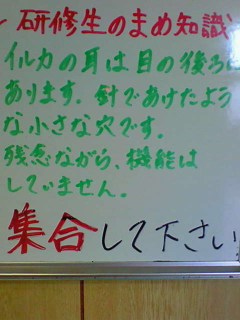 研修生のまめ知識
イルカの耳は目の後ろに
あります。針であけたよう
な小さな穴です。
残念ながら、機能は
していません。
集合して下さい